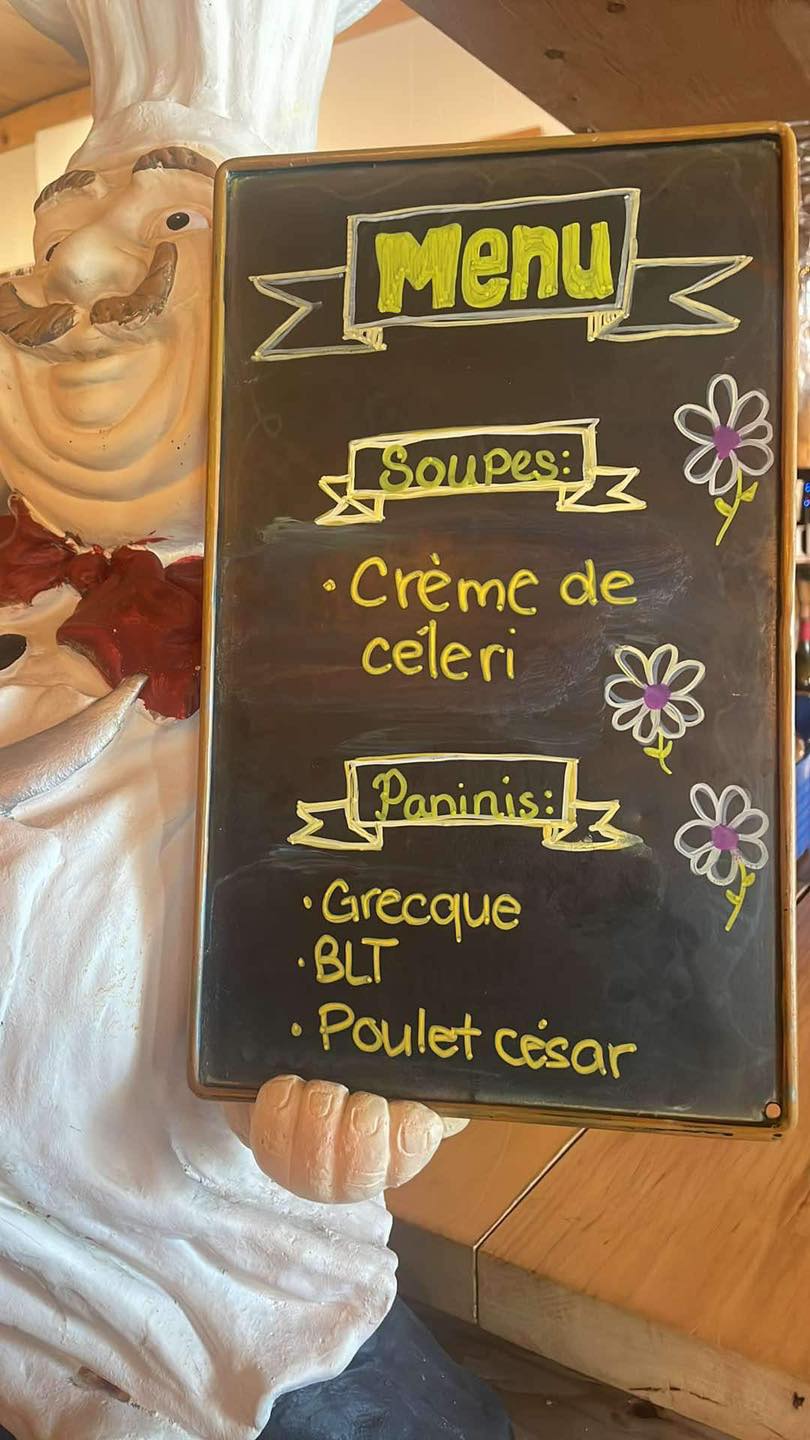 Menu
Soupes:
• Crème de
céleri
Paninis:
• Grecque
• BLT
• Poulet césar